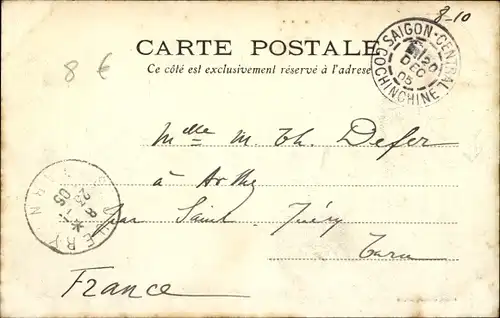 8-10
SAIGON-CENTRAL
20
DEC
05
COCHINCHINE
CARTE POSTALE
8 €
Ce côté est exclusivement réservé à l'adresse
Melle M. Th. Defer
à
par Saint-Juéry
Tarn
France
8
23
05
TARN